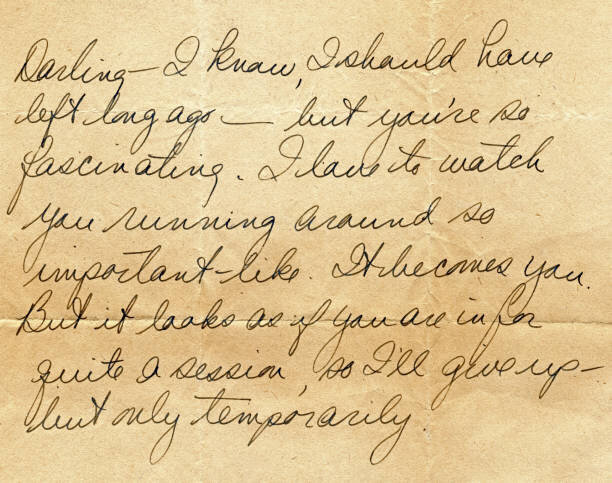 Darling — I know, I should have
left long ago — but you're so
fascinating. I love to watch
you running around so
important-like. It becomes you.
But it looks as if you are in for
quite a session, so I'll give up —
but only temporarily.